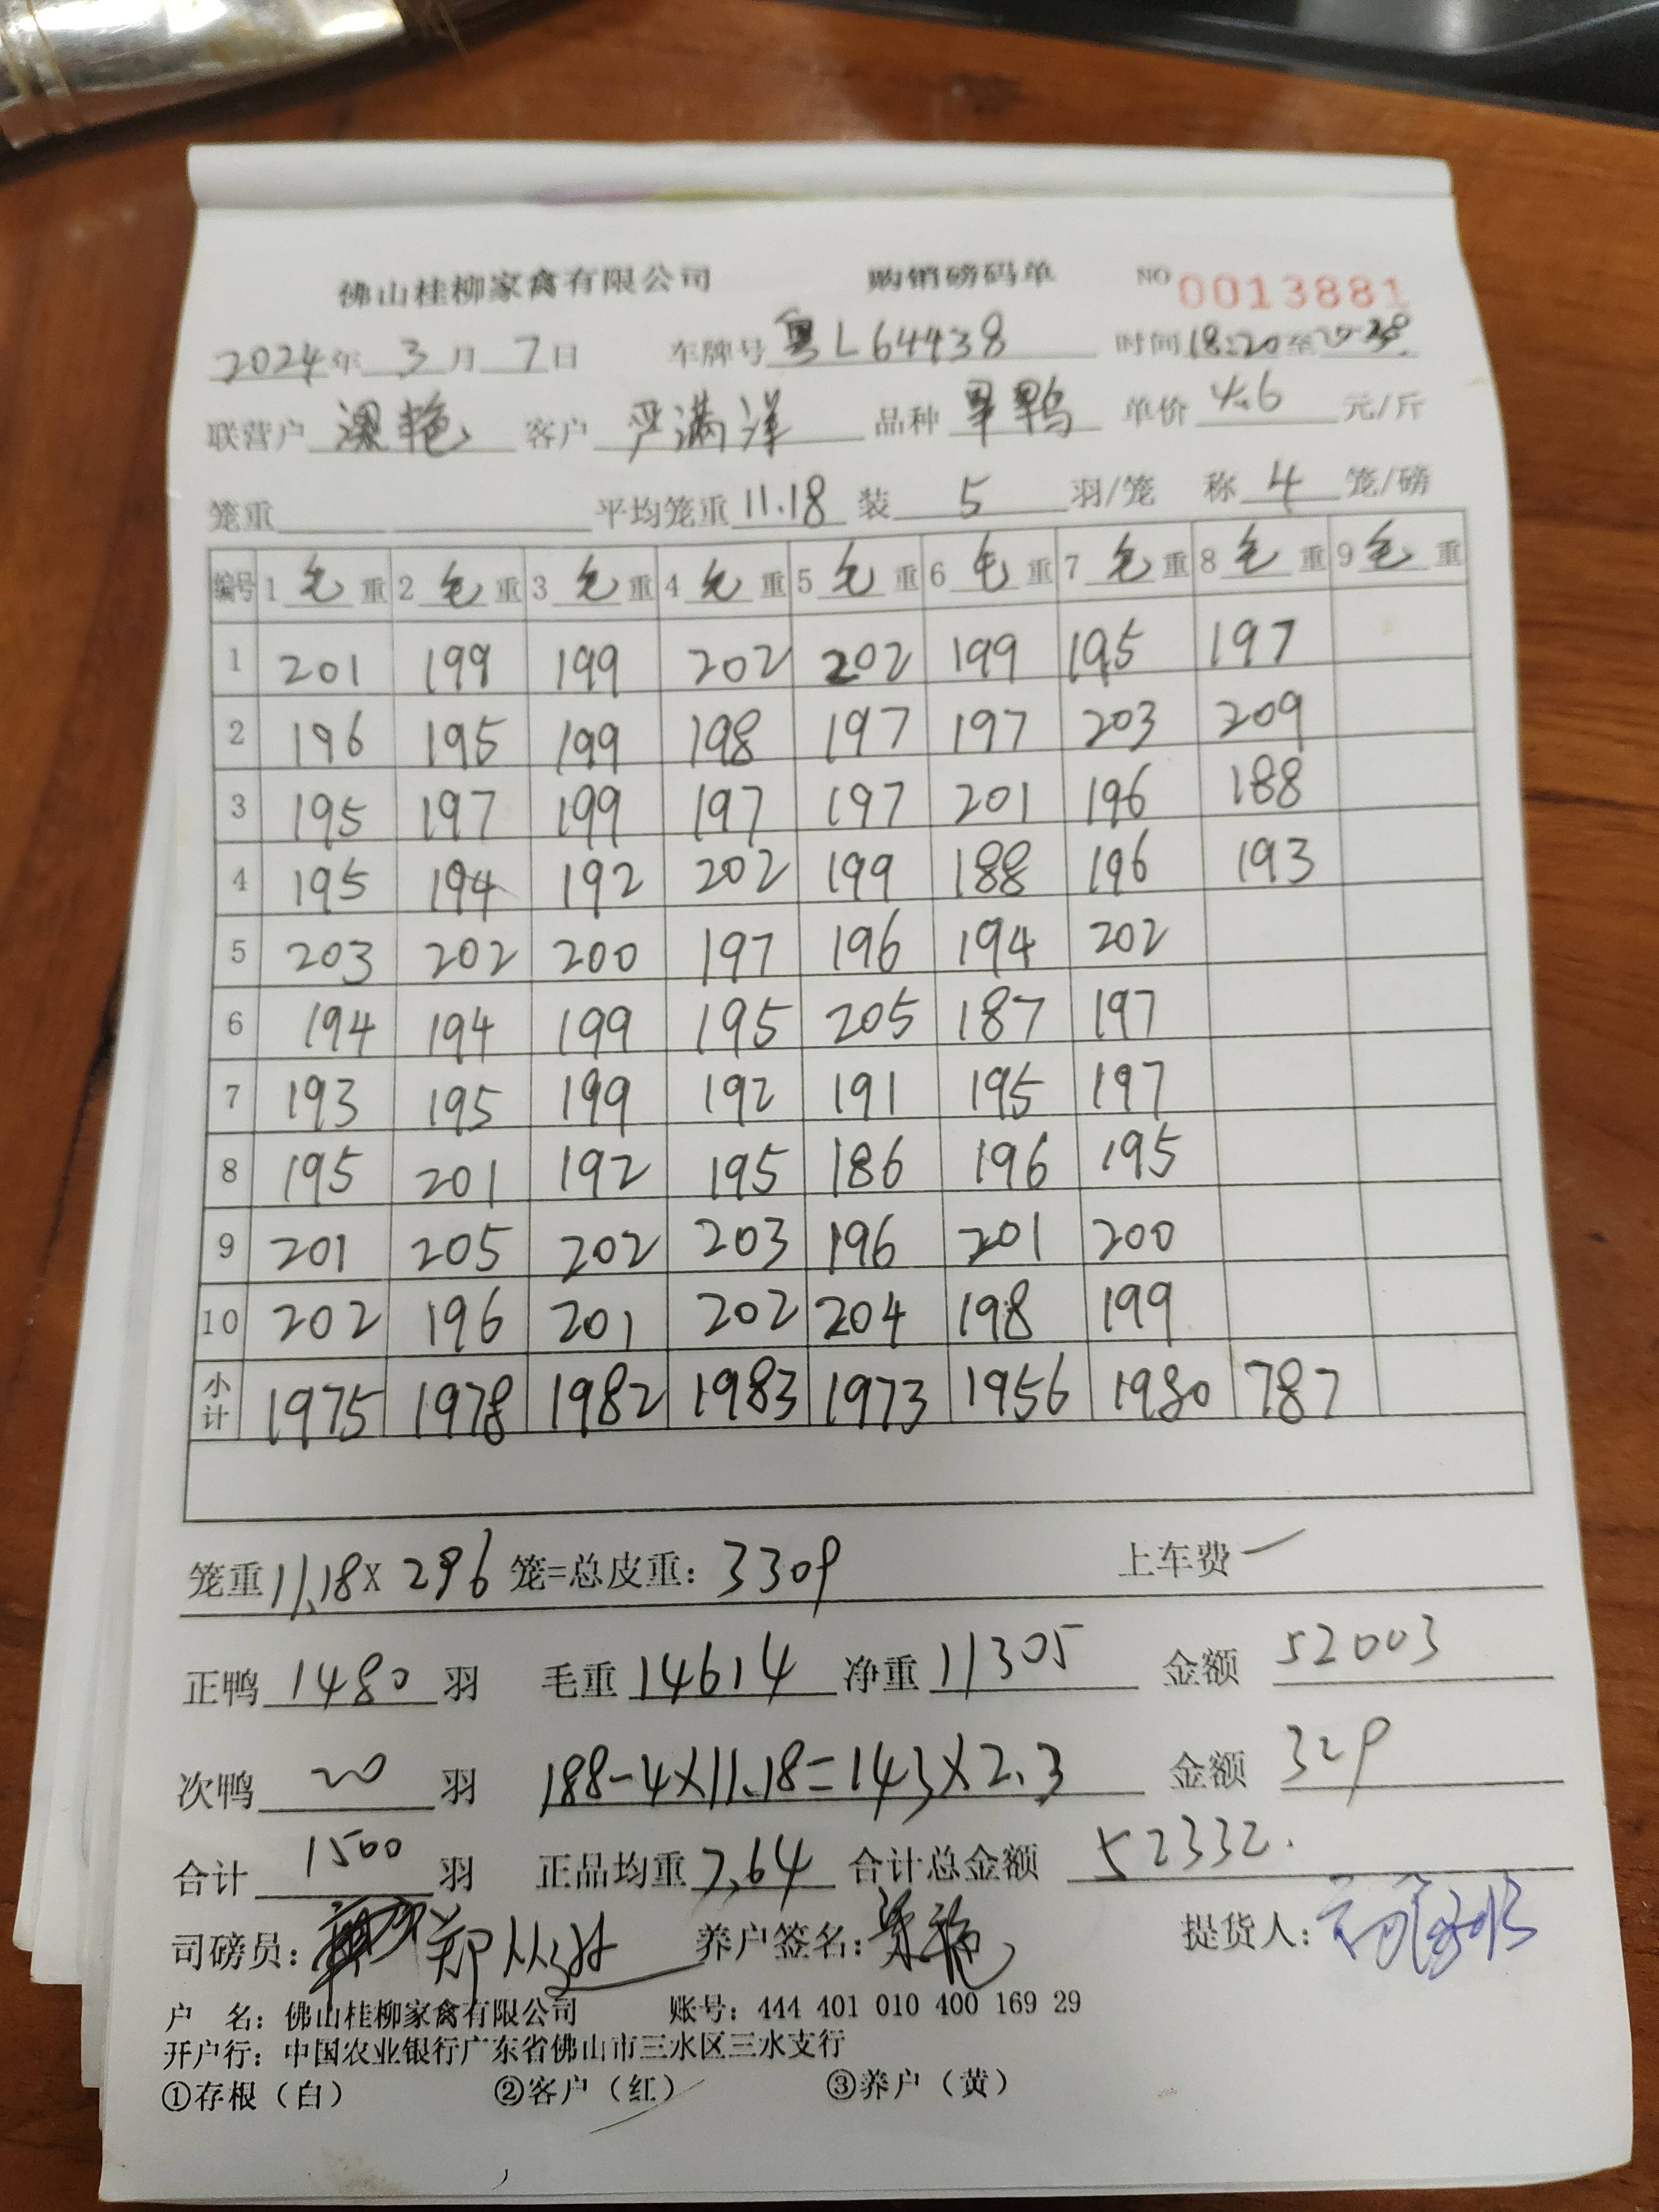 佛山桂柳家禽有限公司 购销磅码单 NO 0013881
2024年 3 月 7 日 车牌号 粤L64438 时间 18:20至
联营户 梁艳 客户 严满洋 品种 单价 4.6 元/斤
笼重 平均笼重 11.18 装 5 羽/笼 称 4 笼/磅
编号 1 毛 重 2 毛 重 3 毛 重 4 毛 重 5 毛 重 6 毛 重 7 毛 重 8 毛 重 9 毛 重
1 201 199 199 202 202 199 195 197
2 196 195 199 198 197 197 203 209
3 195 197 199 197 197 201 196 188
4 195 194 192 202 199 188 196 193
5 203 202 200 197 196 194 202
6 194 194 199 195 205 187 197
7 193 195 199 192 191 195 197
8 195 201 192 195 186 196 195
9 201 205 202 203 196 201 200
10 202 196 201 202 204 198 199
小计 1975 1978 1982 1983 1973 1956 1980 787
笼重 11.18 X 296 笼=总皮重: 3309 上车费 一
正鸭 1480 羽 毛重 14614 净重 11305 金额 52003
次鸭 20 羽 188-4X11.18=143X2.3 金额 329
合计 1500 羽 正品均重 7.64 合计总金额 52332.
司磅员: 郑 养户签名: 梁艳 提货人:
户 名: 佛山桂柳家禽有限公司 账号: 444 401 010 400 169 29
开户行: 中国农业银行广东省佛山市三水区三水支行
①存根（白） ②客户（红） ③养户（黄）